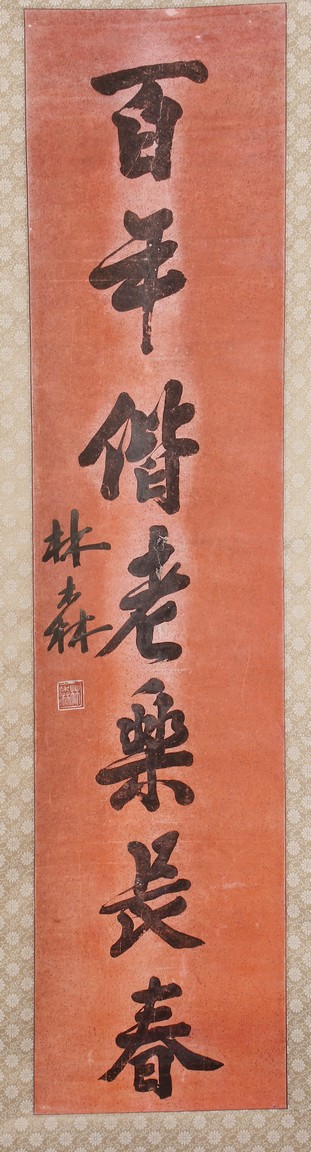 百年偕老樂長春
林森